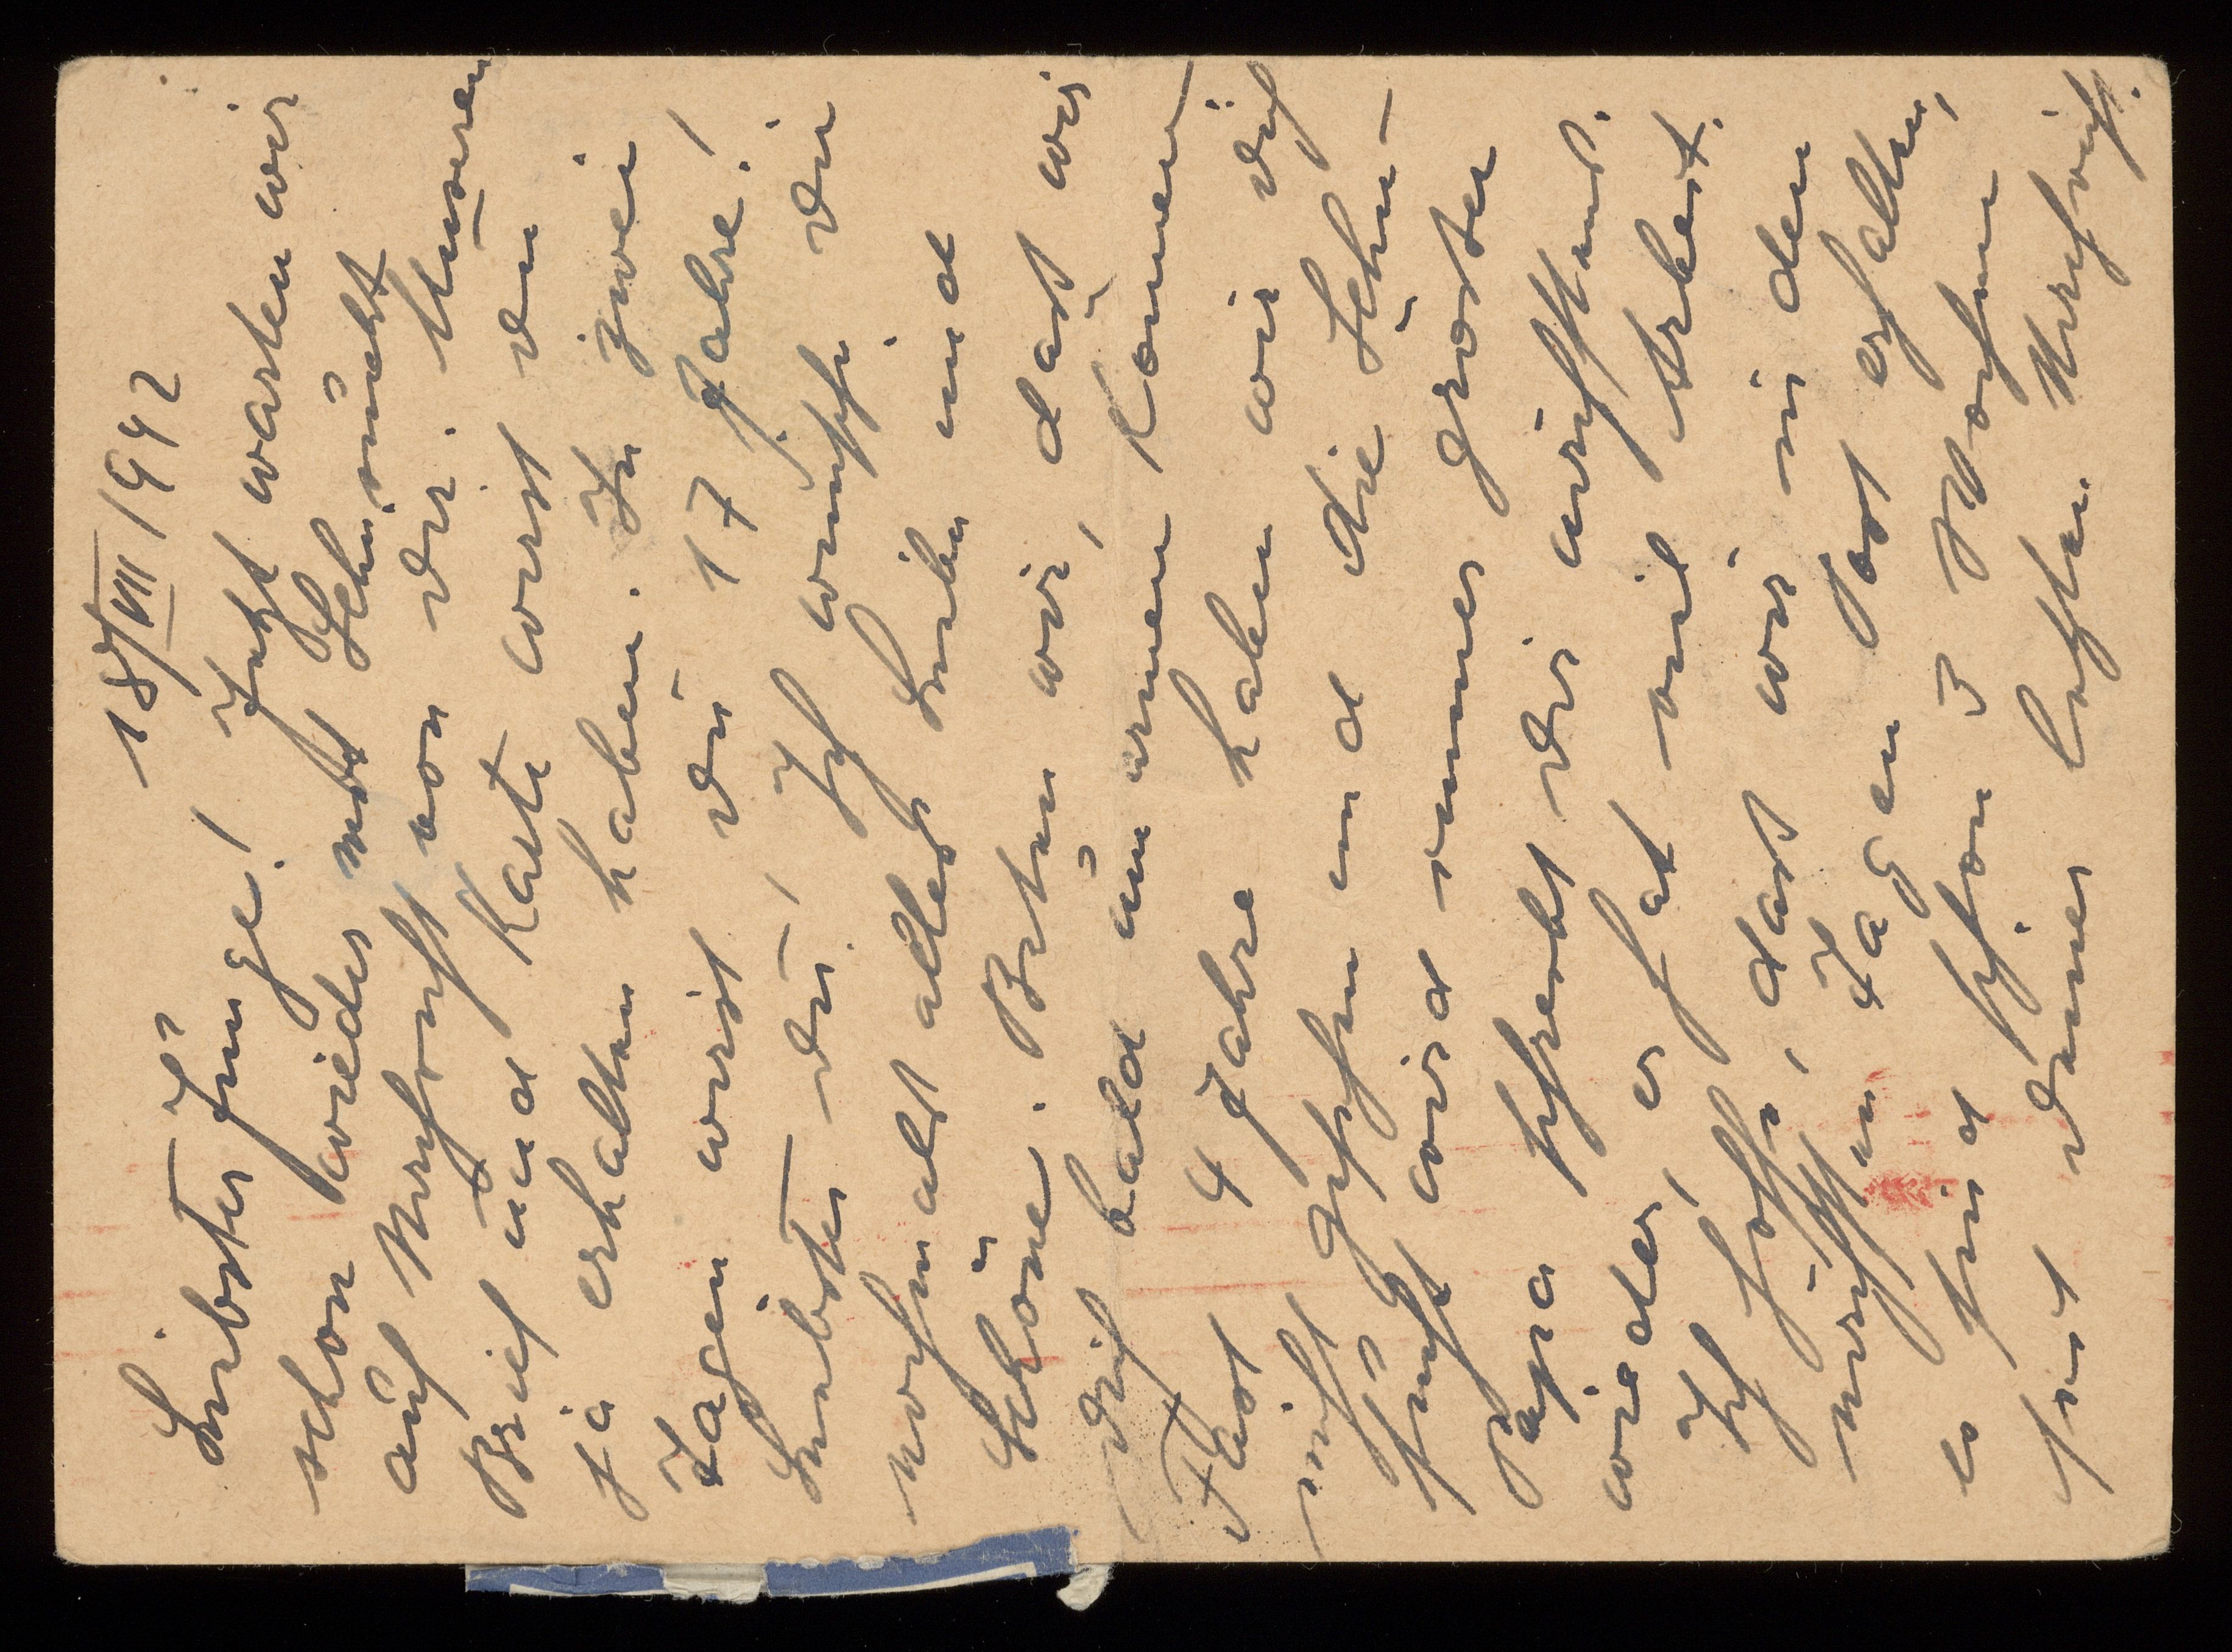 18/VIII 1942
Liebster Junge! Jetzt warten wir
schon wieder mit Sehnsucht
auf Nachricht von dir. Unseren
Brief und Karte wirst du
ja erhalten haben. In zwei
Tagen wirst du 17 Jahre!
Liebster du, ich wünsche dir
nochmals alles Liebe und
Schöne. Beten wir, dass wir
dich bald umarmen können
Fast 4 Jahre haben wir dich
nicht gesehen und die Sehn-
sucht wird immer grösser
Papa schreibt dir nächstens
wieder, er hat viel Arbeit.
Ich hoffe, dass wir in den
nächsten Tagen Post erhalten,
es sind schon 3 Wochen
seit deiner letzten Nachricht.